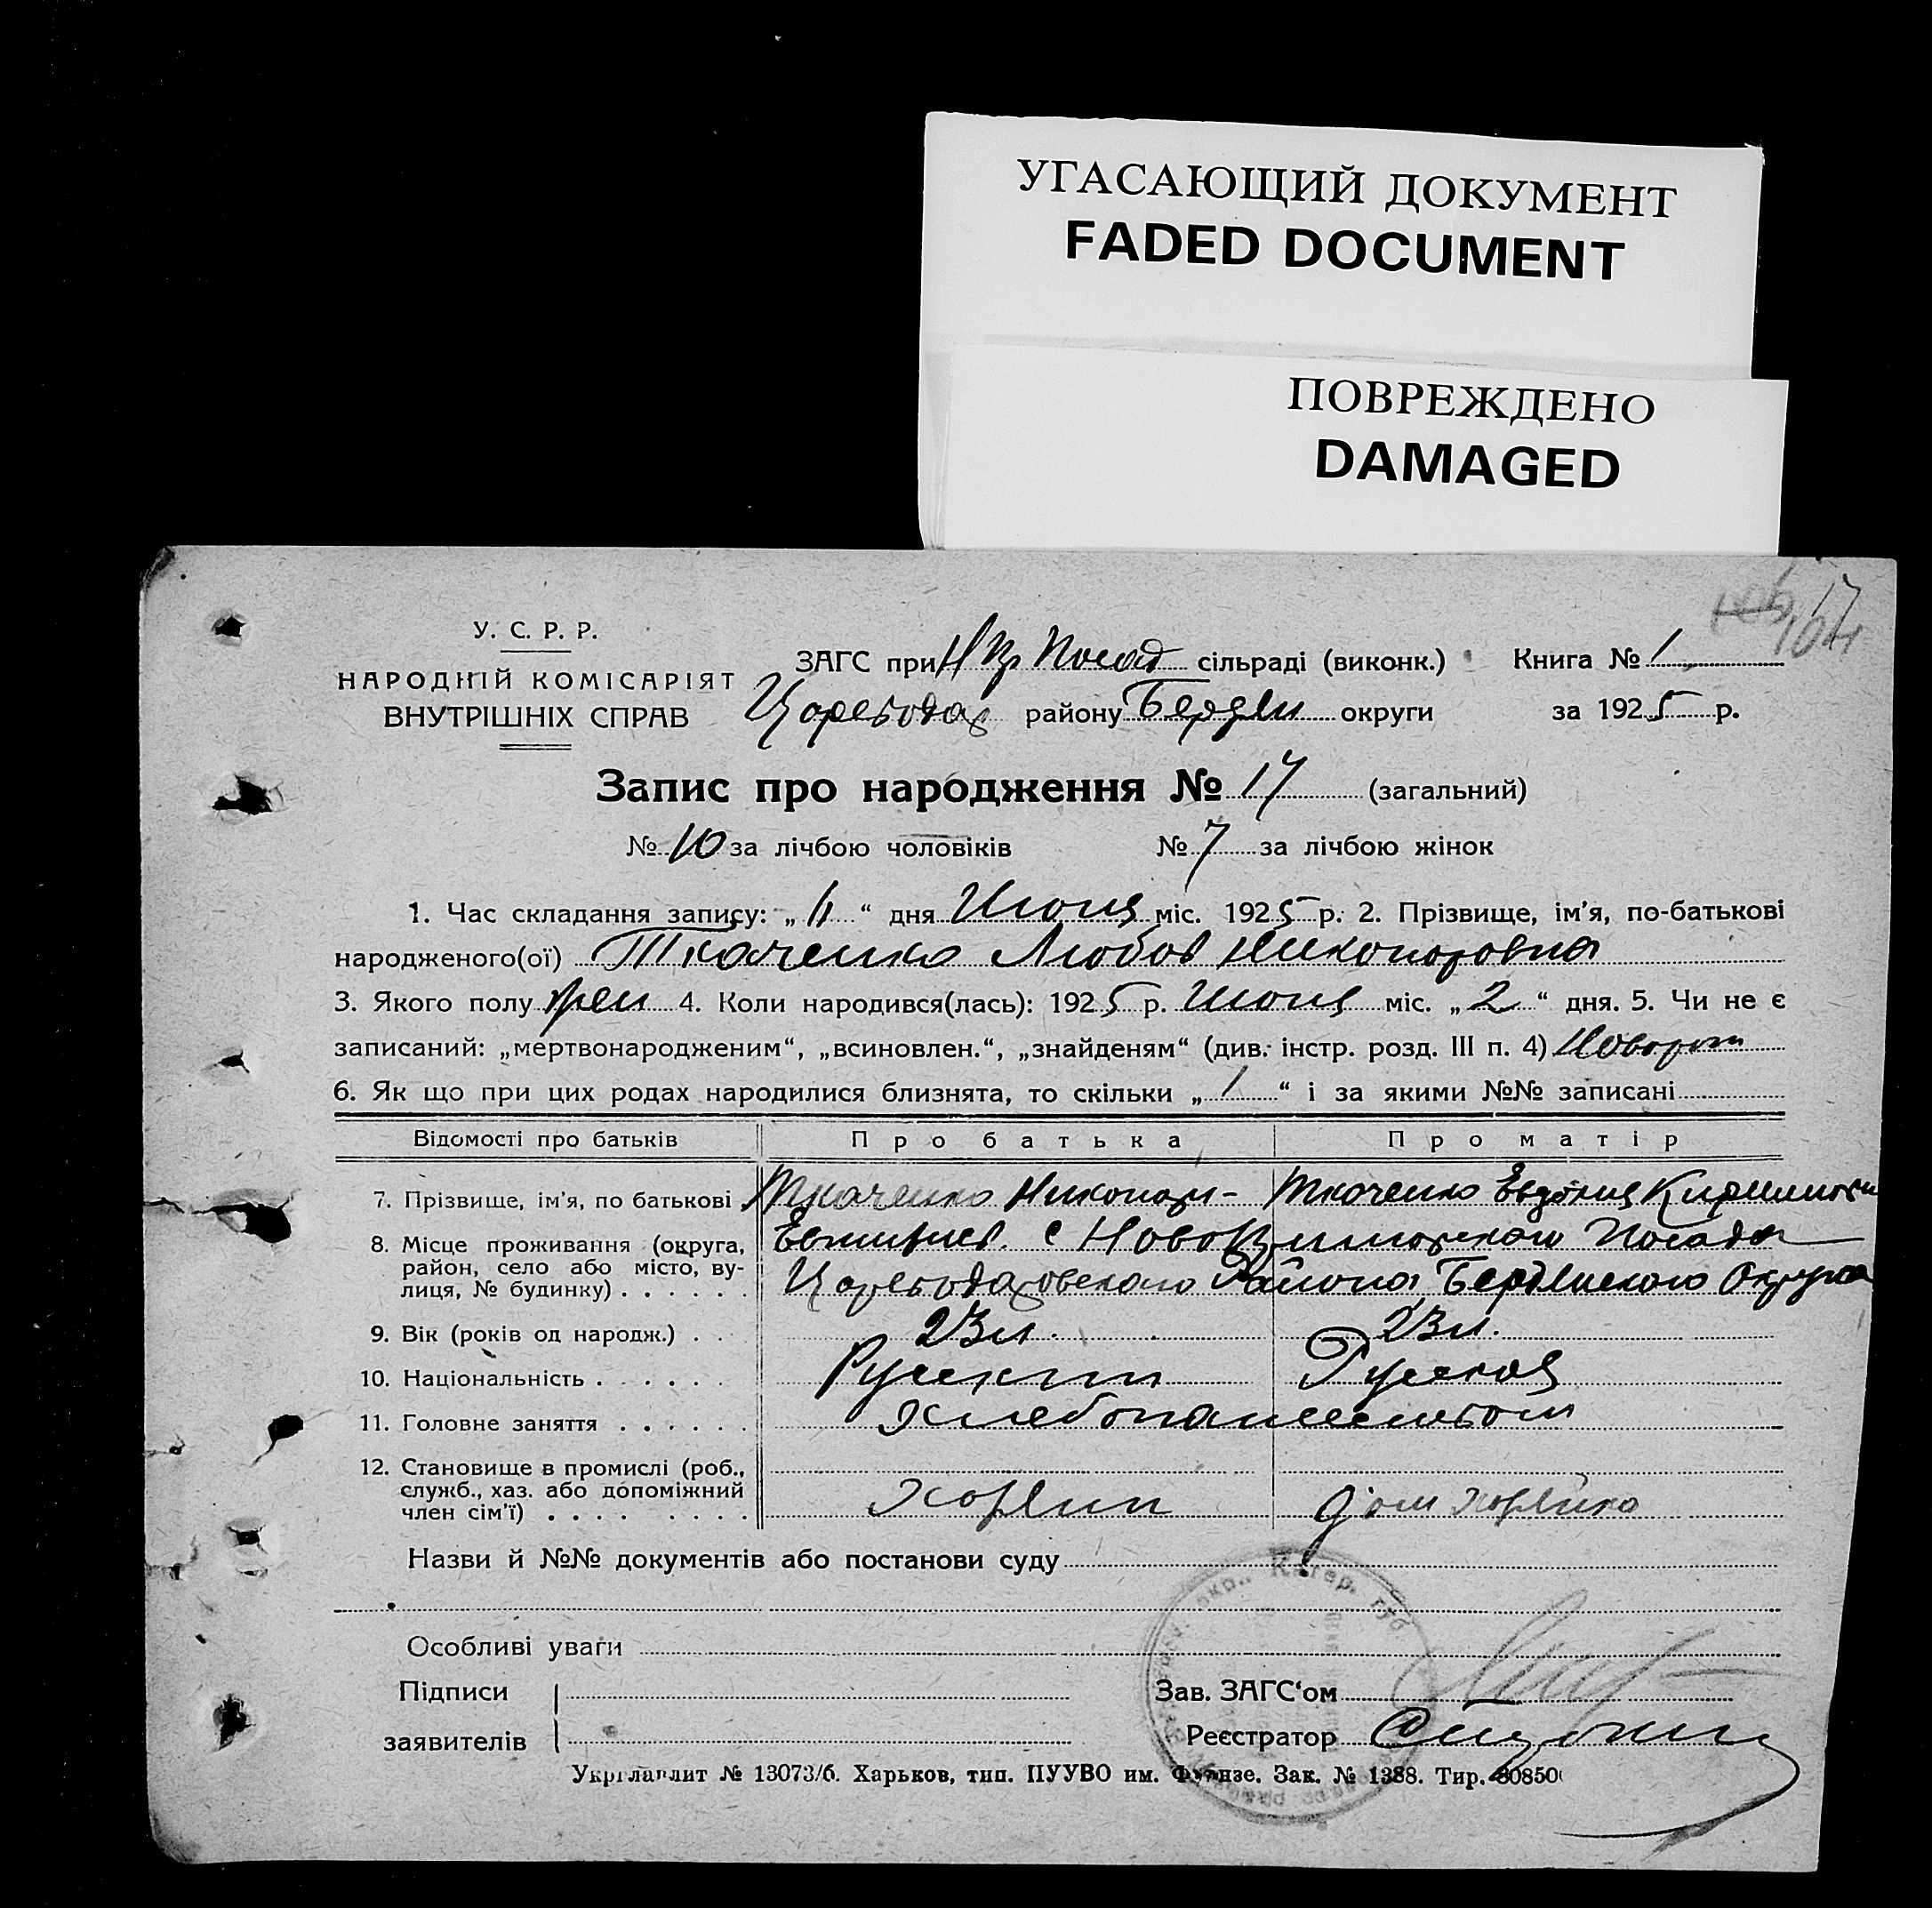 УГАСАЮЩИЙ ДОКУМЕНТ
FADED DOCUMENT
ПОВРЕЖДЕНО
DAMAGED
17
104
У. С. Р. Р.
НАРОДНІЙ КОМІСАРІЯТ
ВНУТРІШНІХ СПРАВ
ЗАГС при Посад сільраді (виконк.) Книга № 1
району Бердян округи за 1925 р.
Запис про народження № 17 (загальний)
№ 10 за лічбою чоловіків № 7 за лічбою жінок
1. Час складання запису: „ 11 “ дня Июня міс. 1925 р. 2. Прізвище, ім’я, по-батькові
народженого(ої) Ткаченко Любов Никоноровна
3. Якого полу жен 4. Коли народився(лась): 1925 р. Июня міс. „ 2 “ дня. 5. Чи не є
записаний: „мертвонародженим“, „всиновлен.“, „знайденям“ (див. інстр. розд. III п. 4)
6. Як що при цих родах народилися близнята, то скільки „ 1 “ і за якими №№ записані
Відомості про батьків Про батька Про матір
7. Прізвище, ім’я, по батькові Ткаченко Никонор- Ткаченко Евдокия
8. Місце проживання (округа, район, село або місто, вулиця, № будинку) с Ново Посада
Района Бердянского Округа
9. Вік (років од народж.) 23 л. 23 л.
10. Національність Руский Руская
11. Головне заняття Хлебопашеством
12. Становище в промислі (роб., служб., хаз. або допоміжний член сім’ї) Хозяин дом хозяйка
Назви й №№ документів або постанови суду
Особливі уваги
Підписи заявителів
Зав. ЗАГС‘ом
Реєстратор
Укрглавлит № 13073/б. Харьков, тип. ПУУВО им. Фрунзе. Зак. № 1388. Тир.